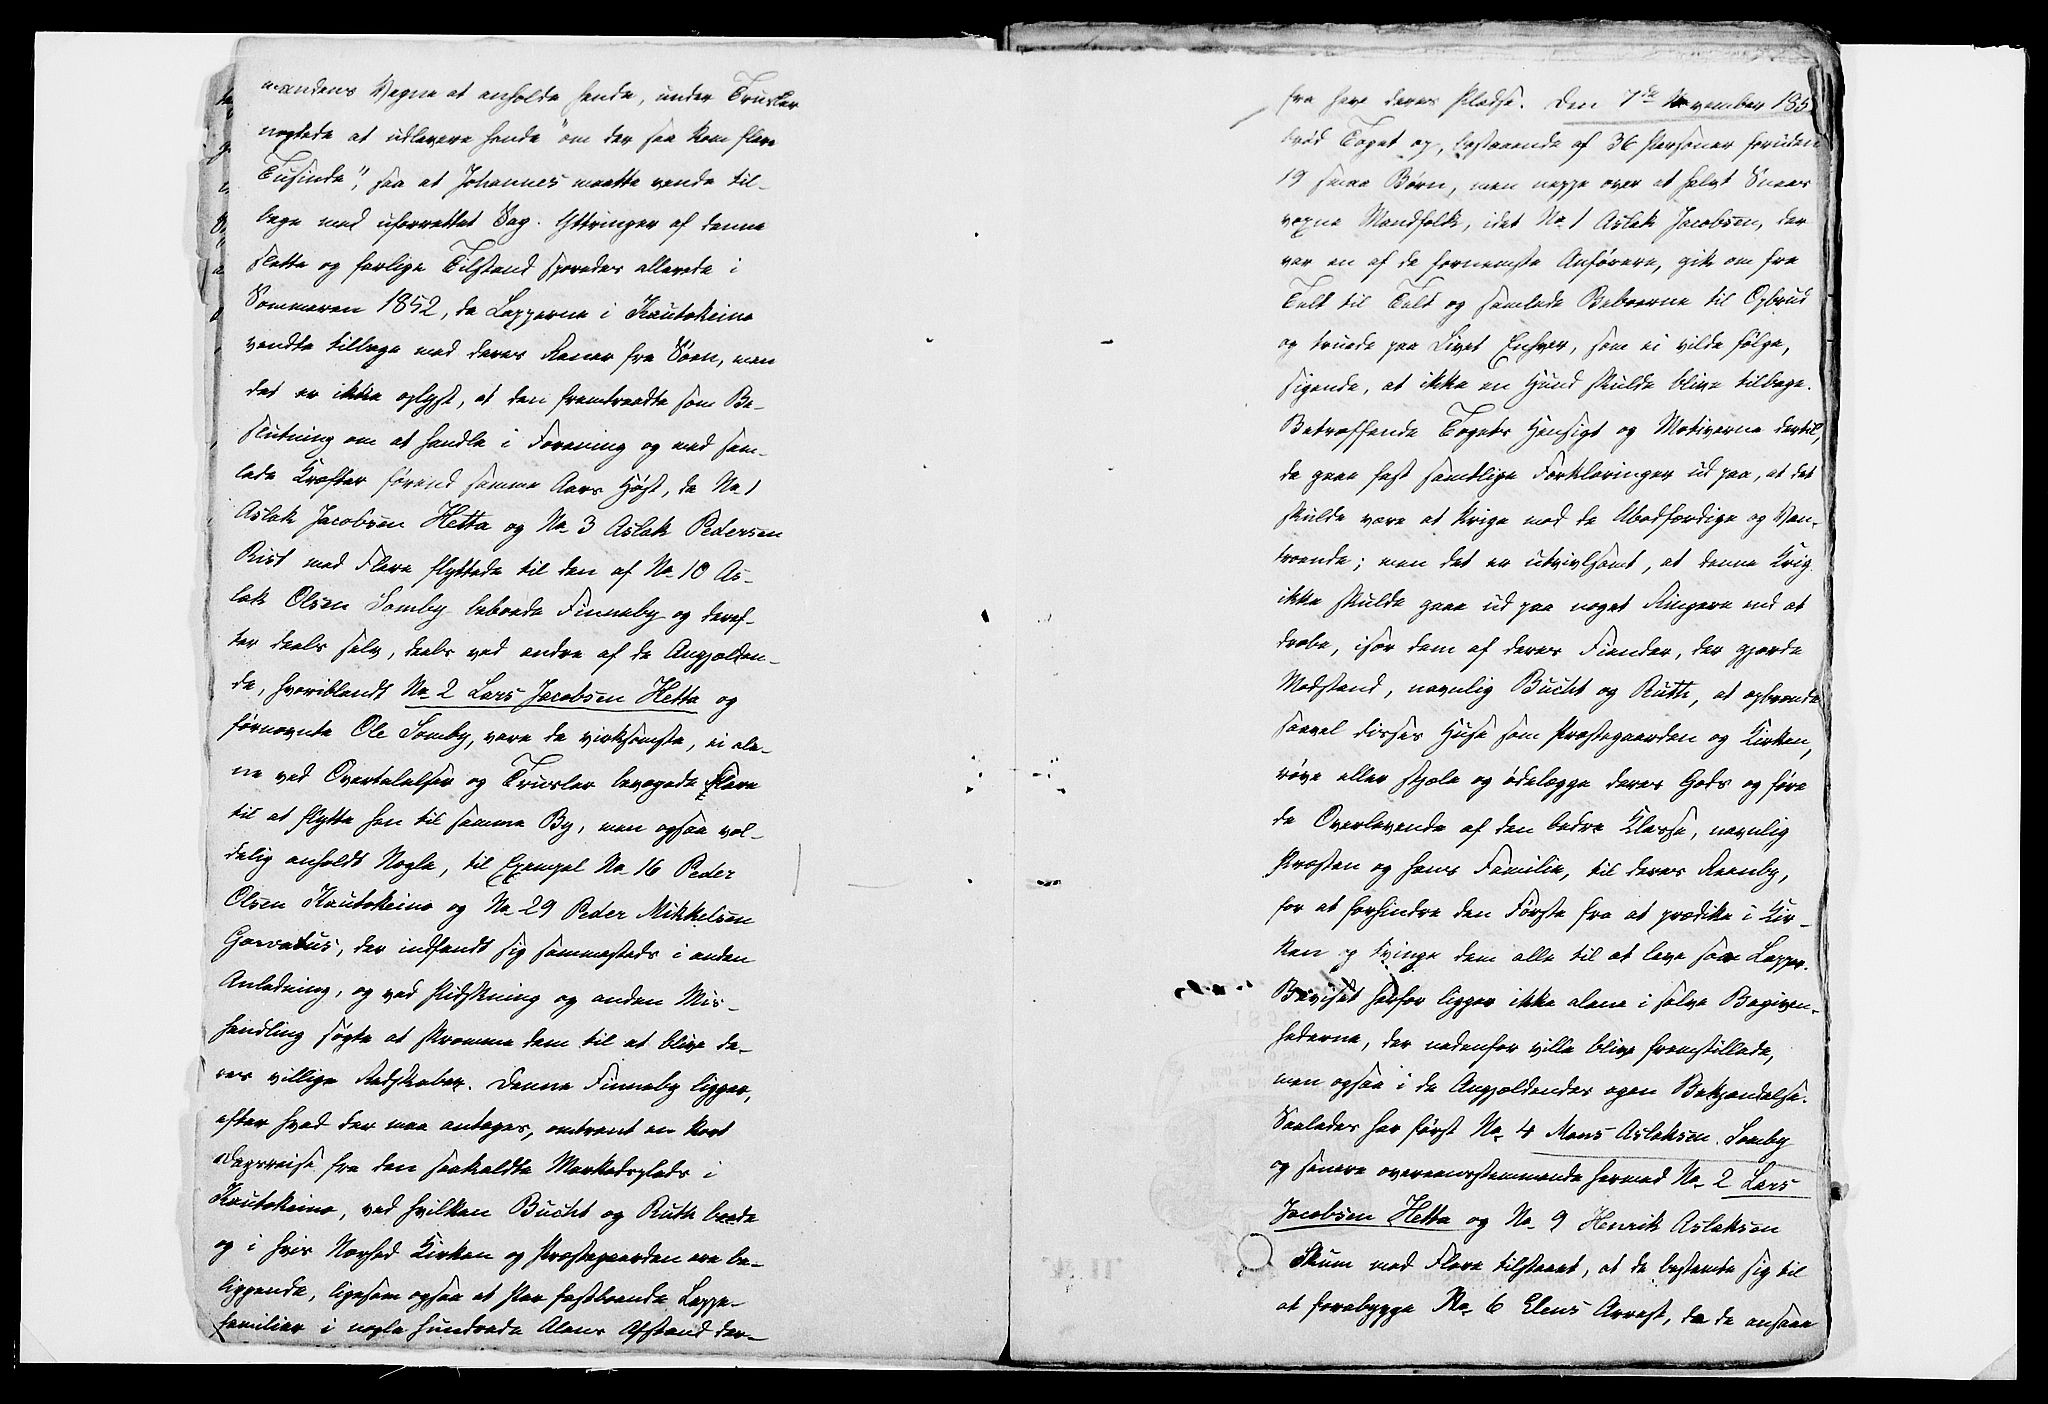 mandens Vegne at anholde hende, under Trusler
negtede at udlevere hende "om der saa kom flere
Tusinde", saa at Johannes maatte vende til-
bage med uforrettet Sag. Yttringer af denne
slette og farlige Tilstand sporedes allerede i
Sommeren 1852, da Lapperne i Kautokeino
vendte tilbage med deres Rener fra Søen, men
det er ikke oplyst, at den fremtraadte som Be-
slutning om at handle i Forening og med sam-
lede Kræfter førend samme Aars Høst, da No 1
Aslak Jacobsen Hetta og No 3 Aslak Pedersen
Rist med Flere flyttede til den af No 10 As-
lak Olsen Somby beboede Finneby og deref-
ter deels selv, deels ved andre af de Angjælden-
de, hvoriblandt No 2 Lars Jacobsen Hetta og
førnevnte Ole Somby, vare de virksomste, ei ale-
ne ved Overtalelser og Trusler bevægede Flere
til at flytte hen til samme By, men ogsaa vol-
delig anholdt Nogle, til Exempel No 16 Peder
Olsen Kautokeino og No 29 Peder Mikkelsen
Garvatus, der indfandt sig sammesteds i anden
Anledning, og ved Pidskning og anden Mis-
handling søgte at skræmme dem til at blive de-
res villige Redskaber. Denne Finneby ligger,
efter hvad der maa antages, omtrent en kort
Dagsreise fra den saakaldte Markedsplads i
Kautokeino, ved hvilken Bucht og Ruth boede
og i hvis Nærhed Kirken og Præstegaarden ere be-
liggende, ligesom ogsaa et Par fastboende Lappe-
familier i nogle hundrede Alens Afstand der-
fra have deres Pladse. Den 7de November 185
brød Toget op, bestaaende af 36 Personer foruden
19 smaa Børn, men neppe over et halvt Snees
voxne Mandfolk, idet No 1 Aslak Jacobsen, der
var en af de fornemste Anførere, gik om fra
Telt til Telt og samlede Beboerne til Opbrud
og truede paa Livet Enhver, som ei vilde følge,
sigende, at ikke en Hund skulde blive tilbage.
Betræffende Togets Hensigt og Motiverne dertil,
da gaae fast samtlige Forklaringer ud paa, at det
skulde være at krige mod de Ubodfærdige og Van-
troende; men det er utvivlsomt, at denne Krig
ikke skulde gaae ud paa noget Ringere end at
dræbe, især dem af deres Fiender, der gjorde
Modstand, navnlig Bucht og Ruth, at opbrænde
saavel disses Huse som Præstegaarden og Kirken,
røve eller stjæle og ødelægge deres Gods og føre
de Overlevende af den bedre Klasse, navnlig
Præsten og hans Familie, til deres Reenby,
for at forhindre den Første fra at prædike i Kir-
ken og tvinge dem alle til at leve som Lapper.
Beviset herfor ligger ikke alene i selve Begiven-
hederne, der nedenfor ville blive fremstillede,
men ogsaa i de Angjældendes egen Bekjendelse.
Saaledes har først No 4 Mons Aslaksen Somby
og senere overeensstemmende hermed No 2 Lars
Jacobsen Hetta og No 9 Henrik Aslaksen
Skum med Flere tilstaaet, at de bestemte sig til
at forebygge No 6 Elens Arrest, da de ansaae